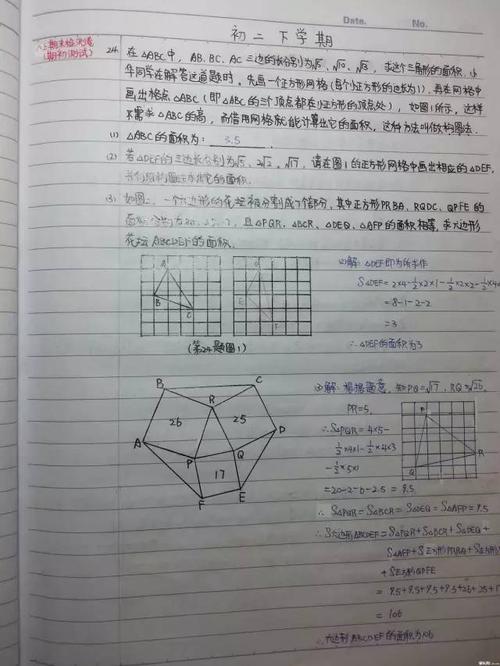 Date.
No.
初二 下学期
八上期末检测卷
(期初测试)
24. 在△ABC中, AB, BC, AC 三边的长分别为√5, √10, √13, 求这个三角形的面积. 小
华同学在解答这道题时, 先画一个正方形网格(每个小正方形的边长为1), 再在网格中
画出格点△ABC (即△ABC的三个顶点都在小正方形的顶点处), 如图1所示, 这样
不需求△ABC的高, 而借用网格就能计算出它的面积, 这种方法叫做构图法.
(1) △ABC的面积为: 3.5
(2) 若△DEF的三边长分别为√5, 2√2, √17, 请在图1的正方形网格中画出相应的△DEF,
并利用构图法求出它的面积.
(3) 如图2, 一个六边形的花坛被分割成7个部分, 其中正方形PRBA, RQDC, QPFE的
面积分别为 且△PQR, △BCR, △DEQ, △AFP的面积相等, 求六边形
花坛ABCDEF的面积.
A
B
C
D
E
F
(第24题图1)
(2)解: △DEF即为所求作
S△DEF=2×4-½×2×1-½×2×2-½×4×
=8-1-2-2
=3
∴△DEF的面积为3
B
C
R
26
25
A
D
P
Q
17
F
E
③解: 根据题意, 知PQ=√17, RQ=√26,
PR=5,
∴S△PQR=4×5-
½×4×1-½×4×3
-½×5×1
=20-2-6-2.5=9.5
P
R
Q
∴S△PQR=S△BCR=S△DEQ=S△AFP=9.5
∴S六边形ABCDEF=S△PQR+S△BCR+S△DEQ+
S△AFP+S正方形PRBQ+S正方形
+S正方形QPFE
=9.5+9.5+9.5+9.5+26+25+1
=106
∴六边形ABCDEF的面积为106